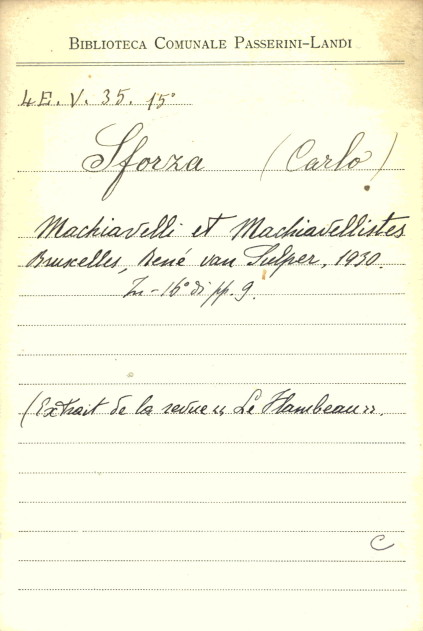 BIBLIOTECA COMUNALE PASSERINI-LANDI
4E. V. 35. 15°
Sforza (Carlo)
Machiavelli et Machiavellistes
Bruxelles, René van Sulper, 1930.
In-16° di pp. 9.
(Extrait de la revue « Le Flambeau ».
C